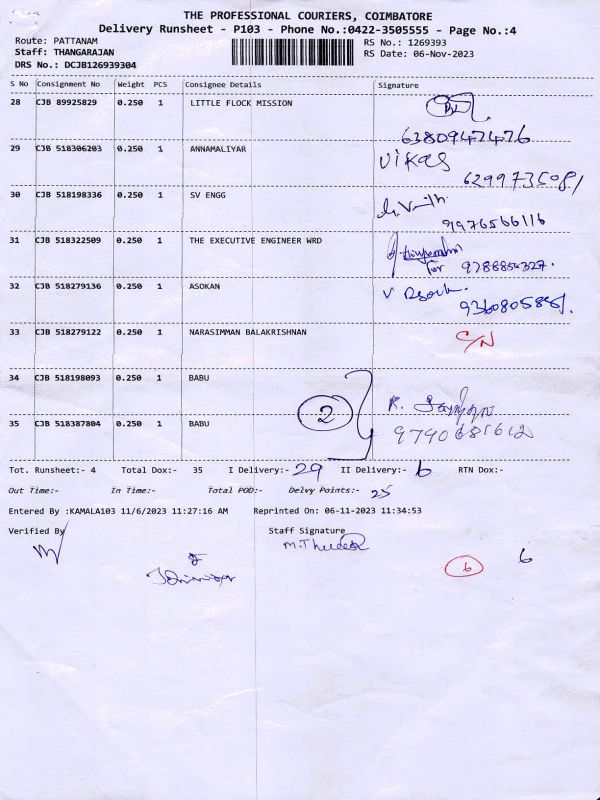 THE PROFESSIONAL COURIERS, COIMBATORE
Delivery Runsheet - P103 - Phone No.:0422-3505555 - Page No.:4
Route: PATTANAM
RS No.: 1269393
Staff: THANGARAJAN
RS Date: 06-Nov-2023
DRS No.: DCJB126939304
S No Consignment No Weight PCS Consignee Details Signature
28 CJB 89925829 0.250 1 LITTLE FLOCK MISSION
6380947476
29 CJB 518306203 0.250 1 ANNAMALIYAR Vikas
6299735081
30 CJB 518198336 0.250 1 SV ENGG
9976566116
31 CJB 518322509 0.250 1 THE EXECUTIVE ENGINEER WRD
for 9788856327.
32 CJB 518279136 0.250 1 ASOKAN
33 CJB 518279122 0.250 1 NARASIMMAN BALAKRISHNAN C/N
34 CJB 518198093 0.250 1 BABU
2
35 CJB 518387804 0.250 1 BABU
Tot. Runsheet:- 4 Total Dox:- 35 I Delivery:- 29 II Delivery:- 6 RTN Dox:-
Out Time:- In Time:- Total POD:- Delvy Points:- 25
Entered By :KAMALA103 11/6/2023 11:27:16 AM Reprinted On: 06-11-2023 11:34:53
Verified By Staff Signature
6 6